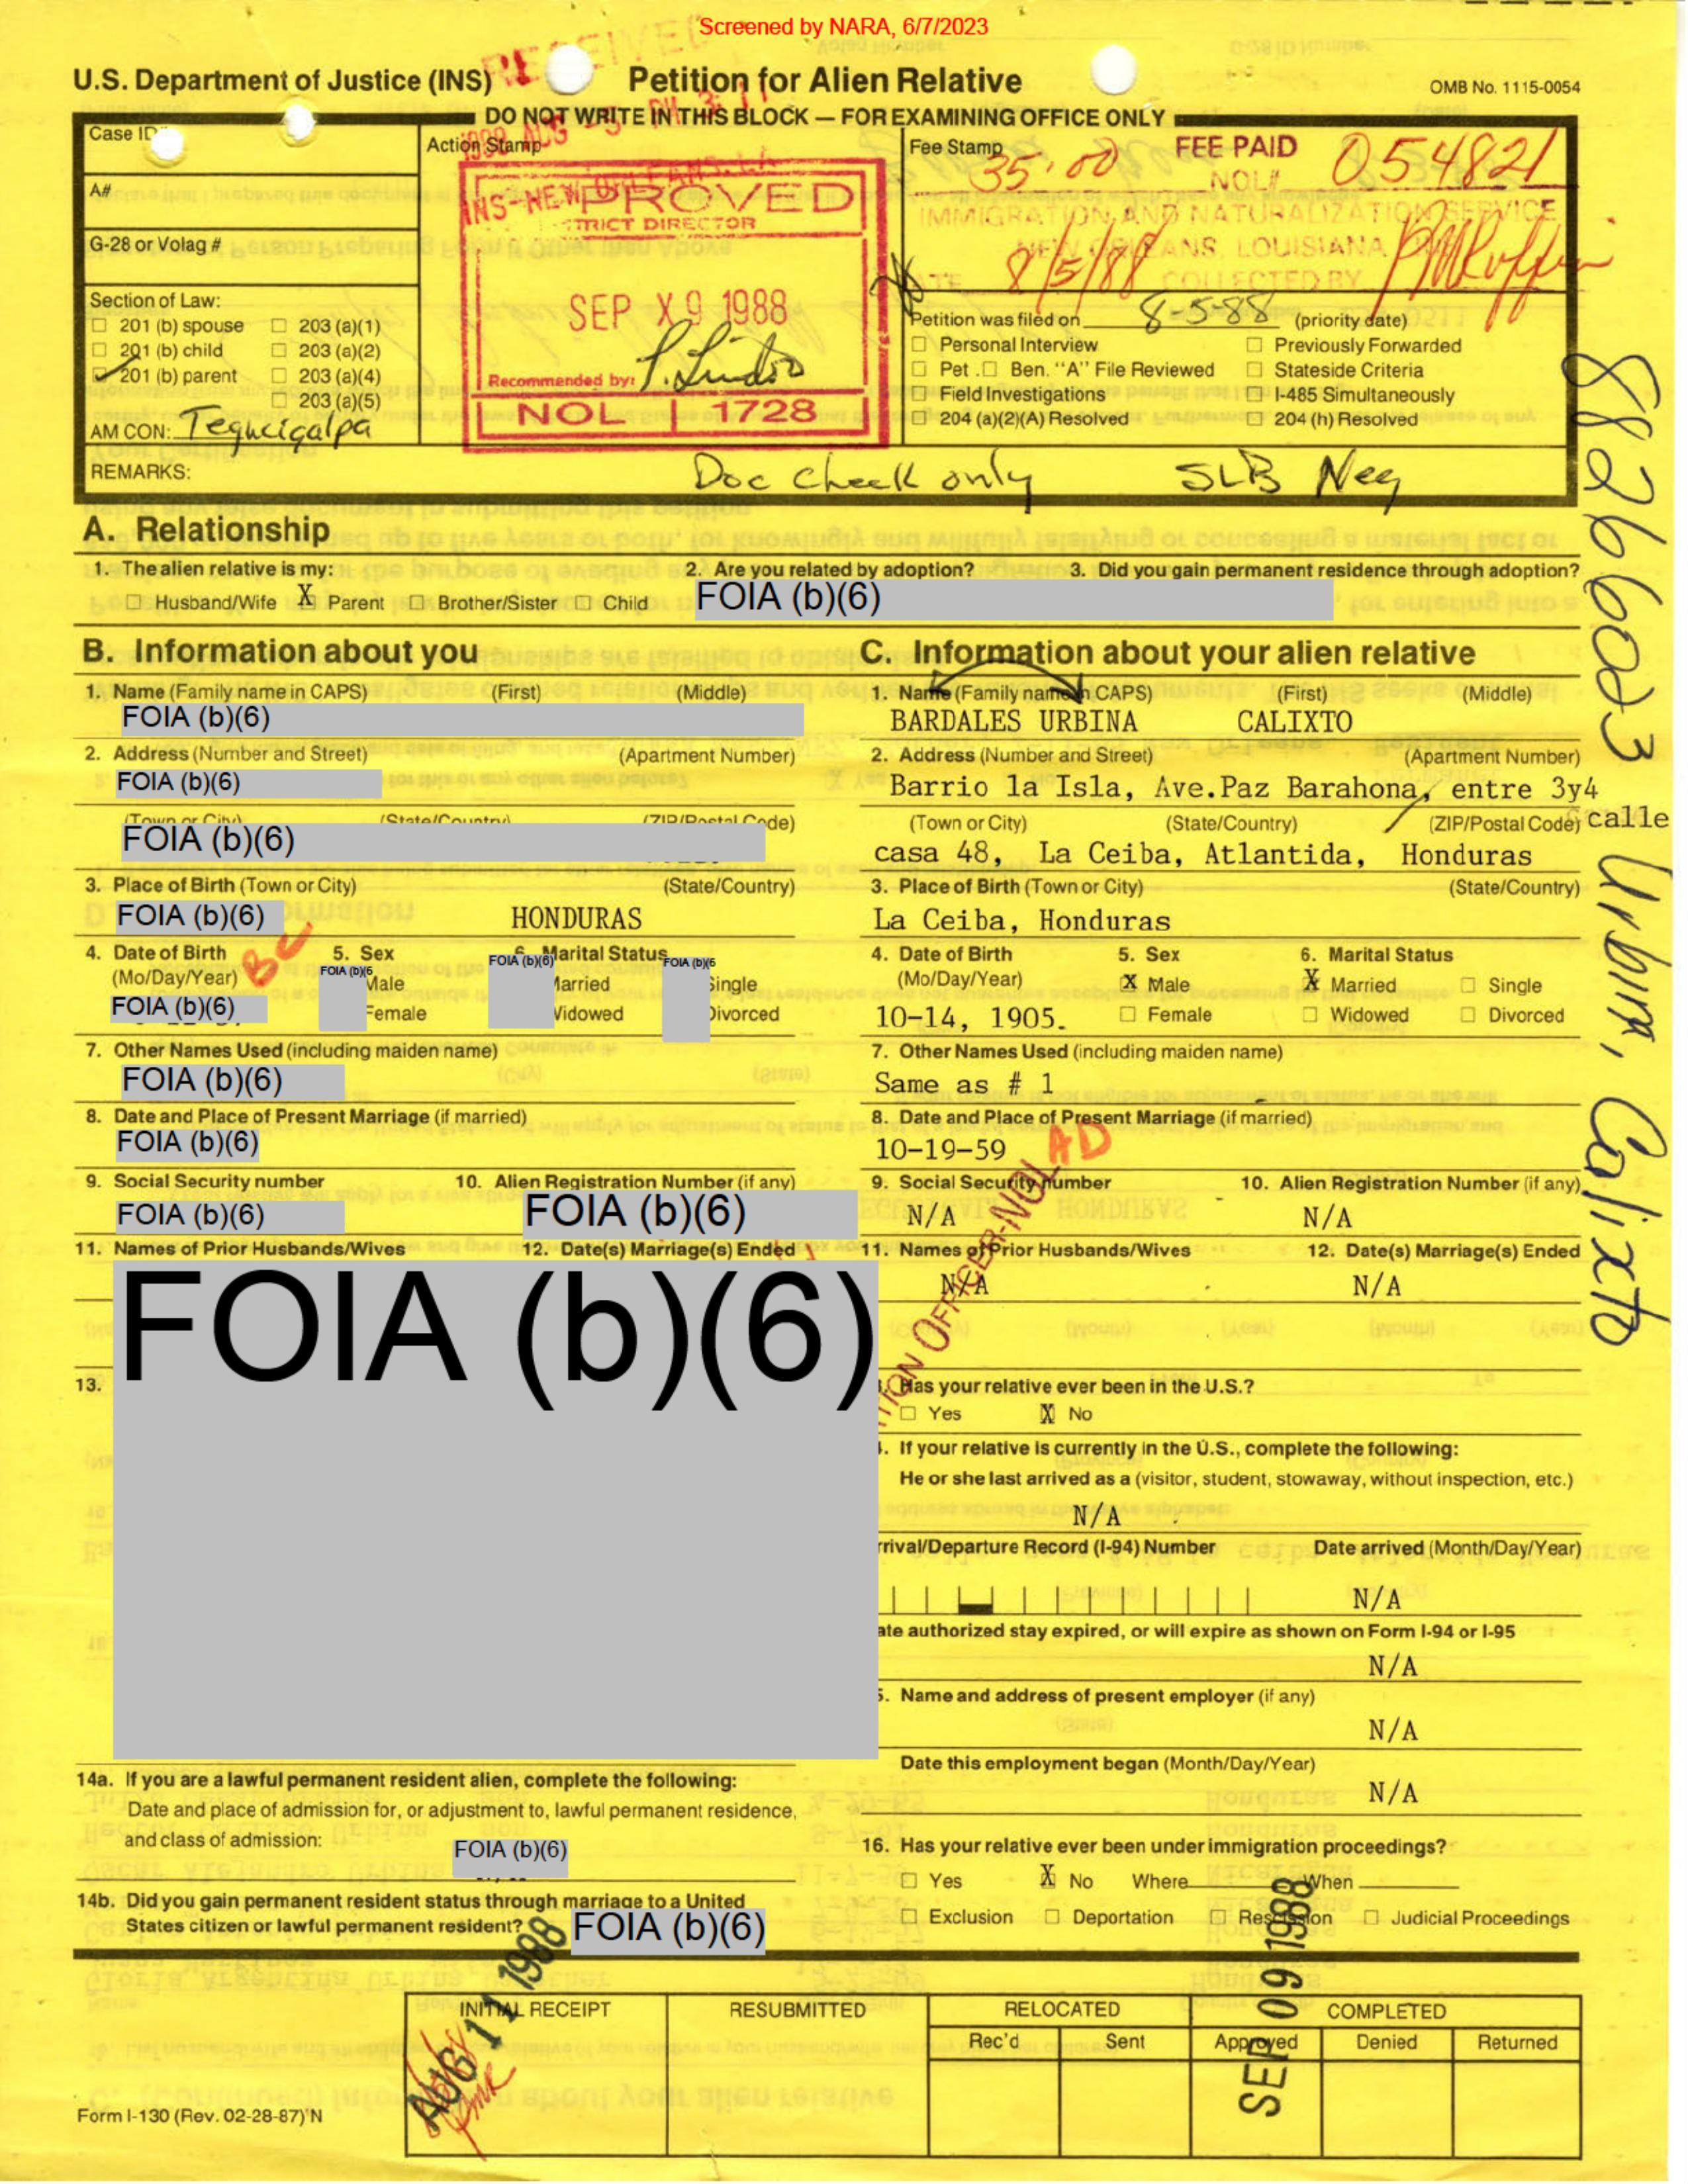 Screened by NARA, 6/7/2023
RECEIVED
U.S. Department of Justice (INS)
Petition for Alien Relative
OMB No. 1115-0054
DO NOT WRITE IN THIS BLOCK — FOR EXAMINING OFFICE ONLY
Case ID#
Action Stamp
Fee Stamp
35.00
FEE PAID
NOL#
054821
A#
INS-NEW ORLEANS, LA
PROVED
STRICT DIRECTOR
IMMIGRATION AND NATURALIZATION SERVICE
NEW ORLEANS, LOUISIANA
G-28 or Volag #
DATE 8/5/88 COLLECTED BY
SEP X 9 1988
Recommended by:
NOL 1728
Section of Law:
☐ 201 (b) spouse ☐ 203 (a)(1)
☐ 201 (b) child ☐ 203 (a)(2)
☑ 201 (b) parent ☐ 203 (a)(4)
☐ 203 (a)(5)
AM CON: Tegucigalpa
Petition was filed on 8-5-88 (priority date)
☐ Personal Interview ☐ Previously Forwarded
☐ Pet. ☐ Ben. "A" File Reviewed ☐ Stateside Criteria
☐ Field Investigations ☐ I-485 Simultaneously
☐ 204 (a)(2)(A) Resolved ☐ 204 (h) Resolved
REMARKS:
Doc check only SLB Neg
8826003 Urbina, Calixto
A. Relationship
1. The alien relative is my:
☐ Husband/Wife X Parent ☐ Brother/Sister ☐ Child
2. Are you related by adoption?
3. Did you gain permanent residence through adoption?
FOIA (b)(6)
B. Information about you
1. Name (Family name in CAPS) (First) (Middle)
FOIA (b)(6)
2. Address (Number and Street) (Apartment Number)
FOIA (b)(6)
(Town or City) (State/Country) (ZIP/Postal Code)
FOIA (b)(6)
3. Place of Birth (Town or City) (State/Country)
FOIA (b)(6) HONDURAS
BC
4. Date of Birth
(Mo/Day/Year)
FOIA (b)(6)
5. Sex
FOIA (b)(6)
Male
Female
6. Marital Status
FOIA (b)(6) FOIA (b)(6)
Married Single
Widowed Divorced
7. Other Names Used (including maiden name)
FOIA (b)(6)
8. Date and Place of Present Marriage (if married)
FOIA (b)(6)
9. Social Security number 10. Alien Registration Number (if any)
FOIA (b)(6) FOIA (b)(6)
11. Names of Prior Husbands/Wives 12. Date(s) Marriage(s) Ended
FOIA (b)(6)
13.
14a. If you are a lawful permanent resident alien, complete the following:
Date and place of admission for, or adjustment to, lawful permanent residence,
and class of admission:
FOIA (b)(6)
14b. Did you gain permanent resident status through marriage to a United
States citizen or lawful permanent resident? FOIA (b)(6)
C. Information about your alien relative
1. Name (Family name in CAPS) (First) (Middle)
BARDALES URBINA CALIXTO
2. Address (Number and Street) (Apartment Number)
Barrio la Isla, Ave.Paz Barahona, entre 3y4
calle
(Town or City) (State/Country) (ZIP/Postal Code)
casa 48, La Ceiba, Atlantida, Honduras
3. Place of Birth (Town or City) (State/Country)
La Ceiba, Honduras
4. Date of Birth
(Mo/Day/Year)
10-14, 1905.
5. Sex
X Male
☐ Female
6. Marital Status
X Married ☐ Single
☐ Widowed ☐ Divorced
7. Other Names Used (including maiden name)
Same as # 1
8. Date and Place of Present Marriage (if married)
10-19-59
AD
9. Social Security number 10. Alien Registration Number (if any)
N/A N/A
11. Names of Prior Husbands/Wives 12. Date(s) Marriage(s) Ended
N/A N/A
TION OFFICER-NOL
Has your relative ever been in the U.S.?
☐ Yes X No
If your relative is currently in the U.S., complete the following:
He or she last arrived as a (visitor, student, stowaway, without inspection, etc.)
N/A
rrival/Departure Record (I-94) Number Date arrived (Month/Day/Year)
N/A
ate authorized stay expired, or will expire as shown on Form I-94 or I-95
N/A
5. Name and address of present employer (if any)
N/A
Date this employment began (Month/Day/Year)
N/A
16. Has your relative ever been under immigration proceedings?
☐ Yes X No Where When
☐ Exclusion ☐ Deportation ☐ Rescission ☐ Judicial Proceedings
AUG 11 1988
SEP 09 1988
INITIAL RECEIPT RESUBMITTED RELOCATED COMPLETED
Rec'd Sent Approved Denied Returned
Form I-130 (Rev. 02-28-87) N